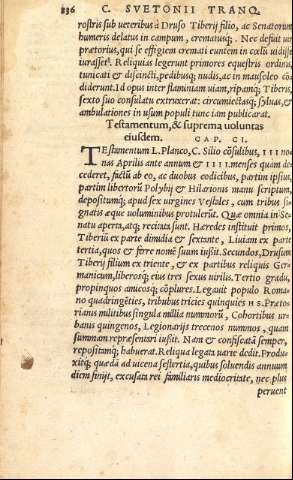 836 C. SVETONII TRANQ.
rostris sub veteribus à Druso Tiberij filio, ac Senatorum
humeris delatus in campum, crematusq;. Nec defuit vir
prætorius, qui se effigiem cremati euntem in cœlũ vidisse
iurasset. Reliquias legerunt primores equestris ordinis,
tunicati & discincti, pedibusq; nudis, ac in mausoleo cõ=
diderunt. Id opus inter flaminiam uiam, ripamq; Tiberis,
sexto suo consulatu extruxerat: circumiectasq; syluas, &
ambulationes in usum populi tunc iam publicarat.
Testamentum, & suprema uoluntas
eiusdem. CAP. CI.
TEstamentum L. Planco, C. Silio cõsulibus, III no=
nas Aprilis ante annum & IIII. menses quam de=
cederet, factũ ab eo, ac duobus codicibus, partim ipsius,
partim libertorũ Polybij & Hilarionis manu scriptum,
depositumq; apud sex uirgines Vestales, cum tribus si=
gnatis æque uoluminibus protulerũt. Quæ omnia in Se=
natu aperta, atq; recitata sunt. Hæredes instituit primos,
Tiberiũ ex parte dimidia & sextante, Liuiam ex parte
tertia, quos & ferre nomẽ suum iußit. Secundos, Drusum
Tiberij filium ex triente, & ex partibus reliquis Ger=
manicum, liberosq; eius tres sexus uirilis. Tertio gradu,
propinquos amicosq; cõplures. Legauit populo Roma=
no quadringẽties, tribubus tricies quinquies HS. Præto=
rianis militibus singula millia nummorũ, Cohortibus ur=
banis quingenos, Legionarijs trecenos nummos, quam
summam repræsentari iußit. Nam & confiscatã semper,
repositamq; habuerat. Reliqua legata varie dedit. Produ=
xitq; quædã ad vicena sestertia, quibus soluendis annuum
diem finijt, excusata rei familiaris mediocritate, nec plus
peruent